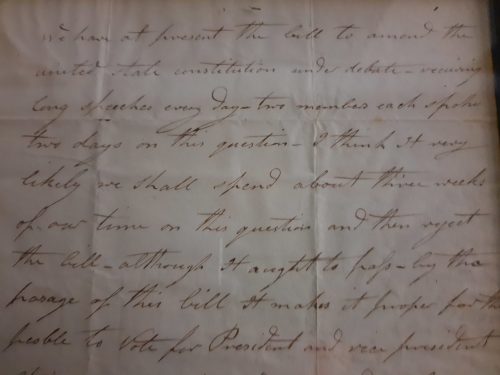 We have at present the bill to amend the
united State constitution under debate - requiring
long speeches every day - two members each spoke
two days on this question - I think it very
likely we shall spend about three weeks
of our time on this question and then reject
the bill - although it aught to pass - by the
passage of this bill it makes it proper for the
people to Vote for President and vice president